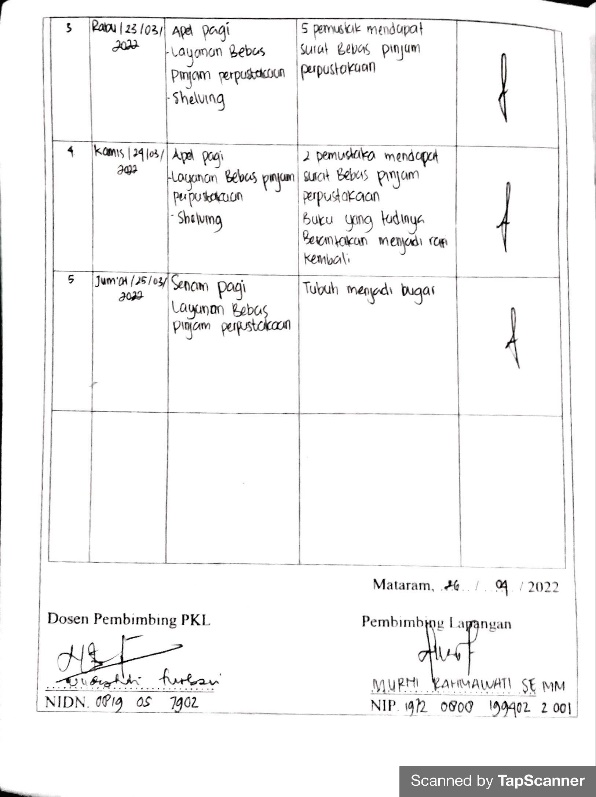 3
Rabu / 23 / 03 /
2022
Apel pagi
- Layanan Bebas
Pinjam perpustakaan
- Shelving
5 pemustak mendapat
Surat Bebas pinjam
perpustakaan
4
Kamis / 24 / 03 /
2022
Apel pagi
- Layanan Bebas pinjam
perpustakaan
- Shelving
2 pemustaka mendapat
surat Bebas pinjam
perpustakaan
Buku yang tadinya
Berantakan menjadi rapi
kembali
5
Jum'at / 25 / 03 /
2022
Senam pagi
Layanan Bebas
pinjam perpustakaan
Tubuh menjadi bugar
Mataram, 26 / 04 / 2022
Dosen Pembimbing PKL
Pembimbing Lapangan
MURNI RAHMAWATI SE MM
NIDN. 0819 05 7902
NIP. 1972 0808 199402 2 001
Scanned by TapScanner